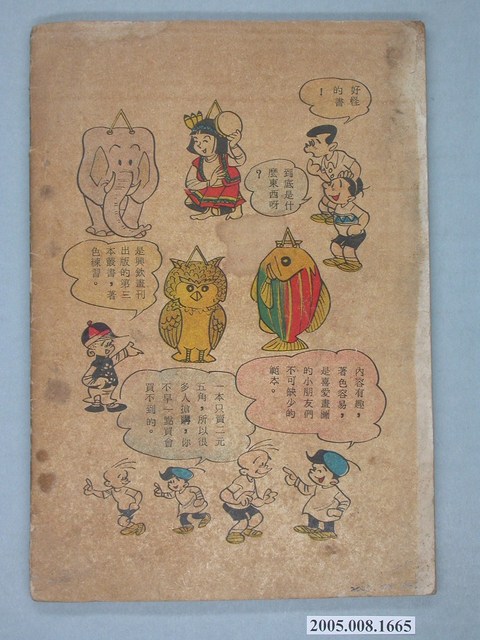 好怪
的書
！
到底是什
麼東西呀
？
是興欽畫刊
出版的第三
本叢書，著
色練習。
內容有趣，
著色容易，
是喜愛畫圖
的小朋友們
不可缺少的
範本。
一本只賣二元
五角，所以很
多人搶購，你
不早一點買會
買不到的。
2005.008.1665